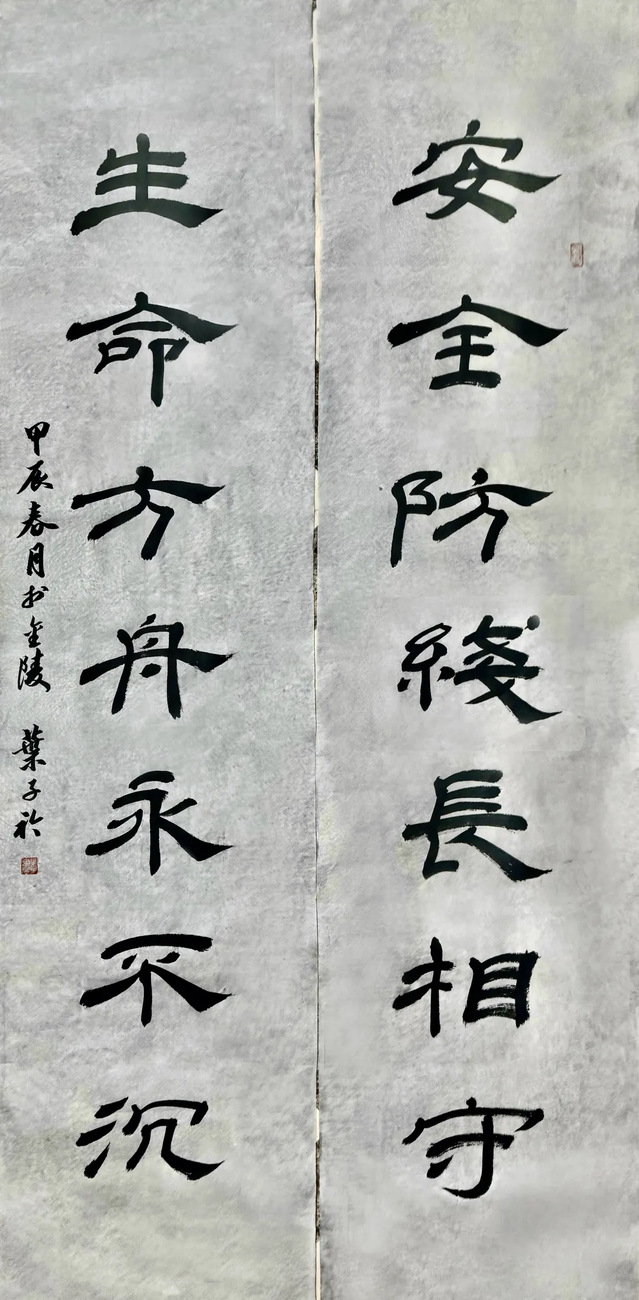 安全防綫長相守
生命方舟永不沉
甲辰春月於金陵 葉子